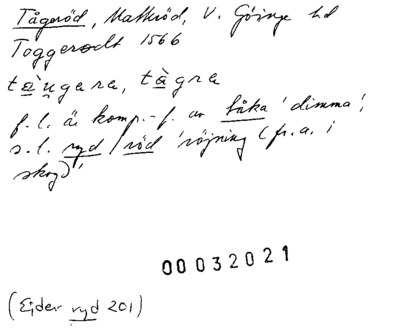 Tågeröd, Matteröd, V. Göinge hd
Toggerodt 1566
tàu̯gara, tàgra
f.l. är komp.-f. av tåka 'dimma';
s.l. ryd / röd 'röjning (fr.a. i
skog)'
00032021
(Ejder ryd 201)